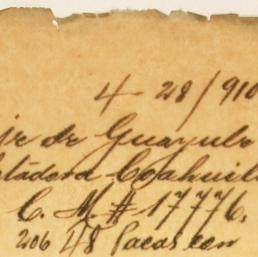 4-28/910
je de Guayule
Coahuil
C. M. # 17776.
206 48 Pacas con